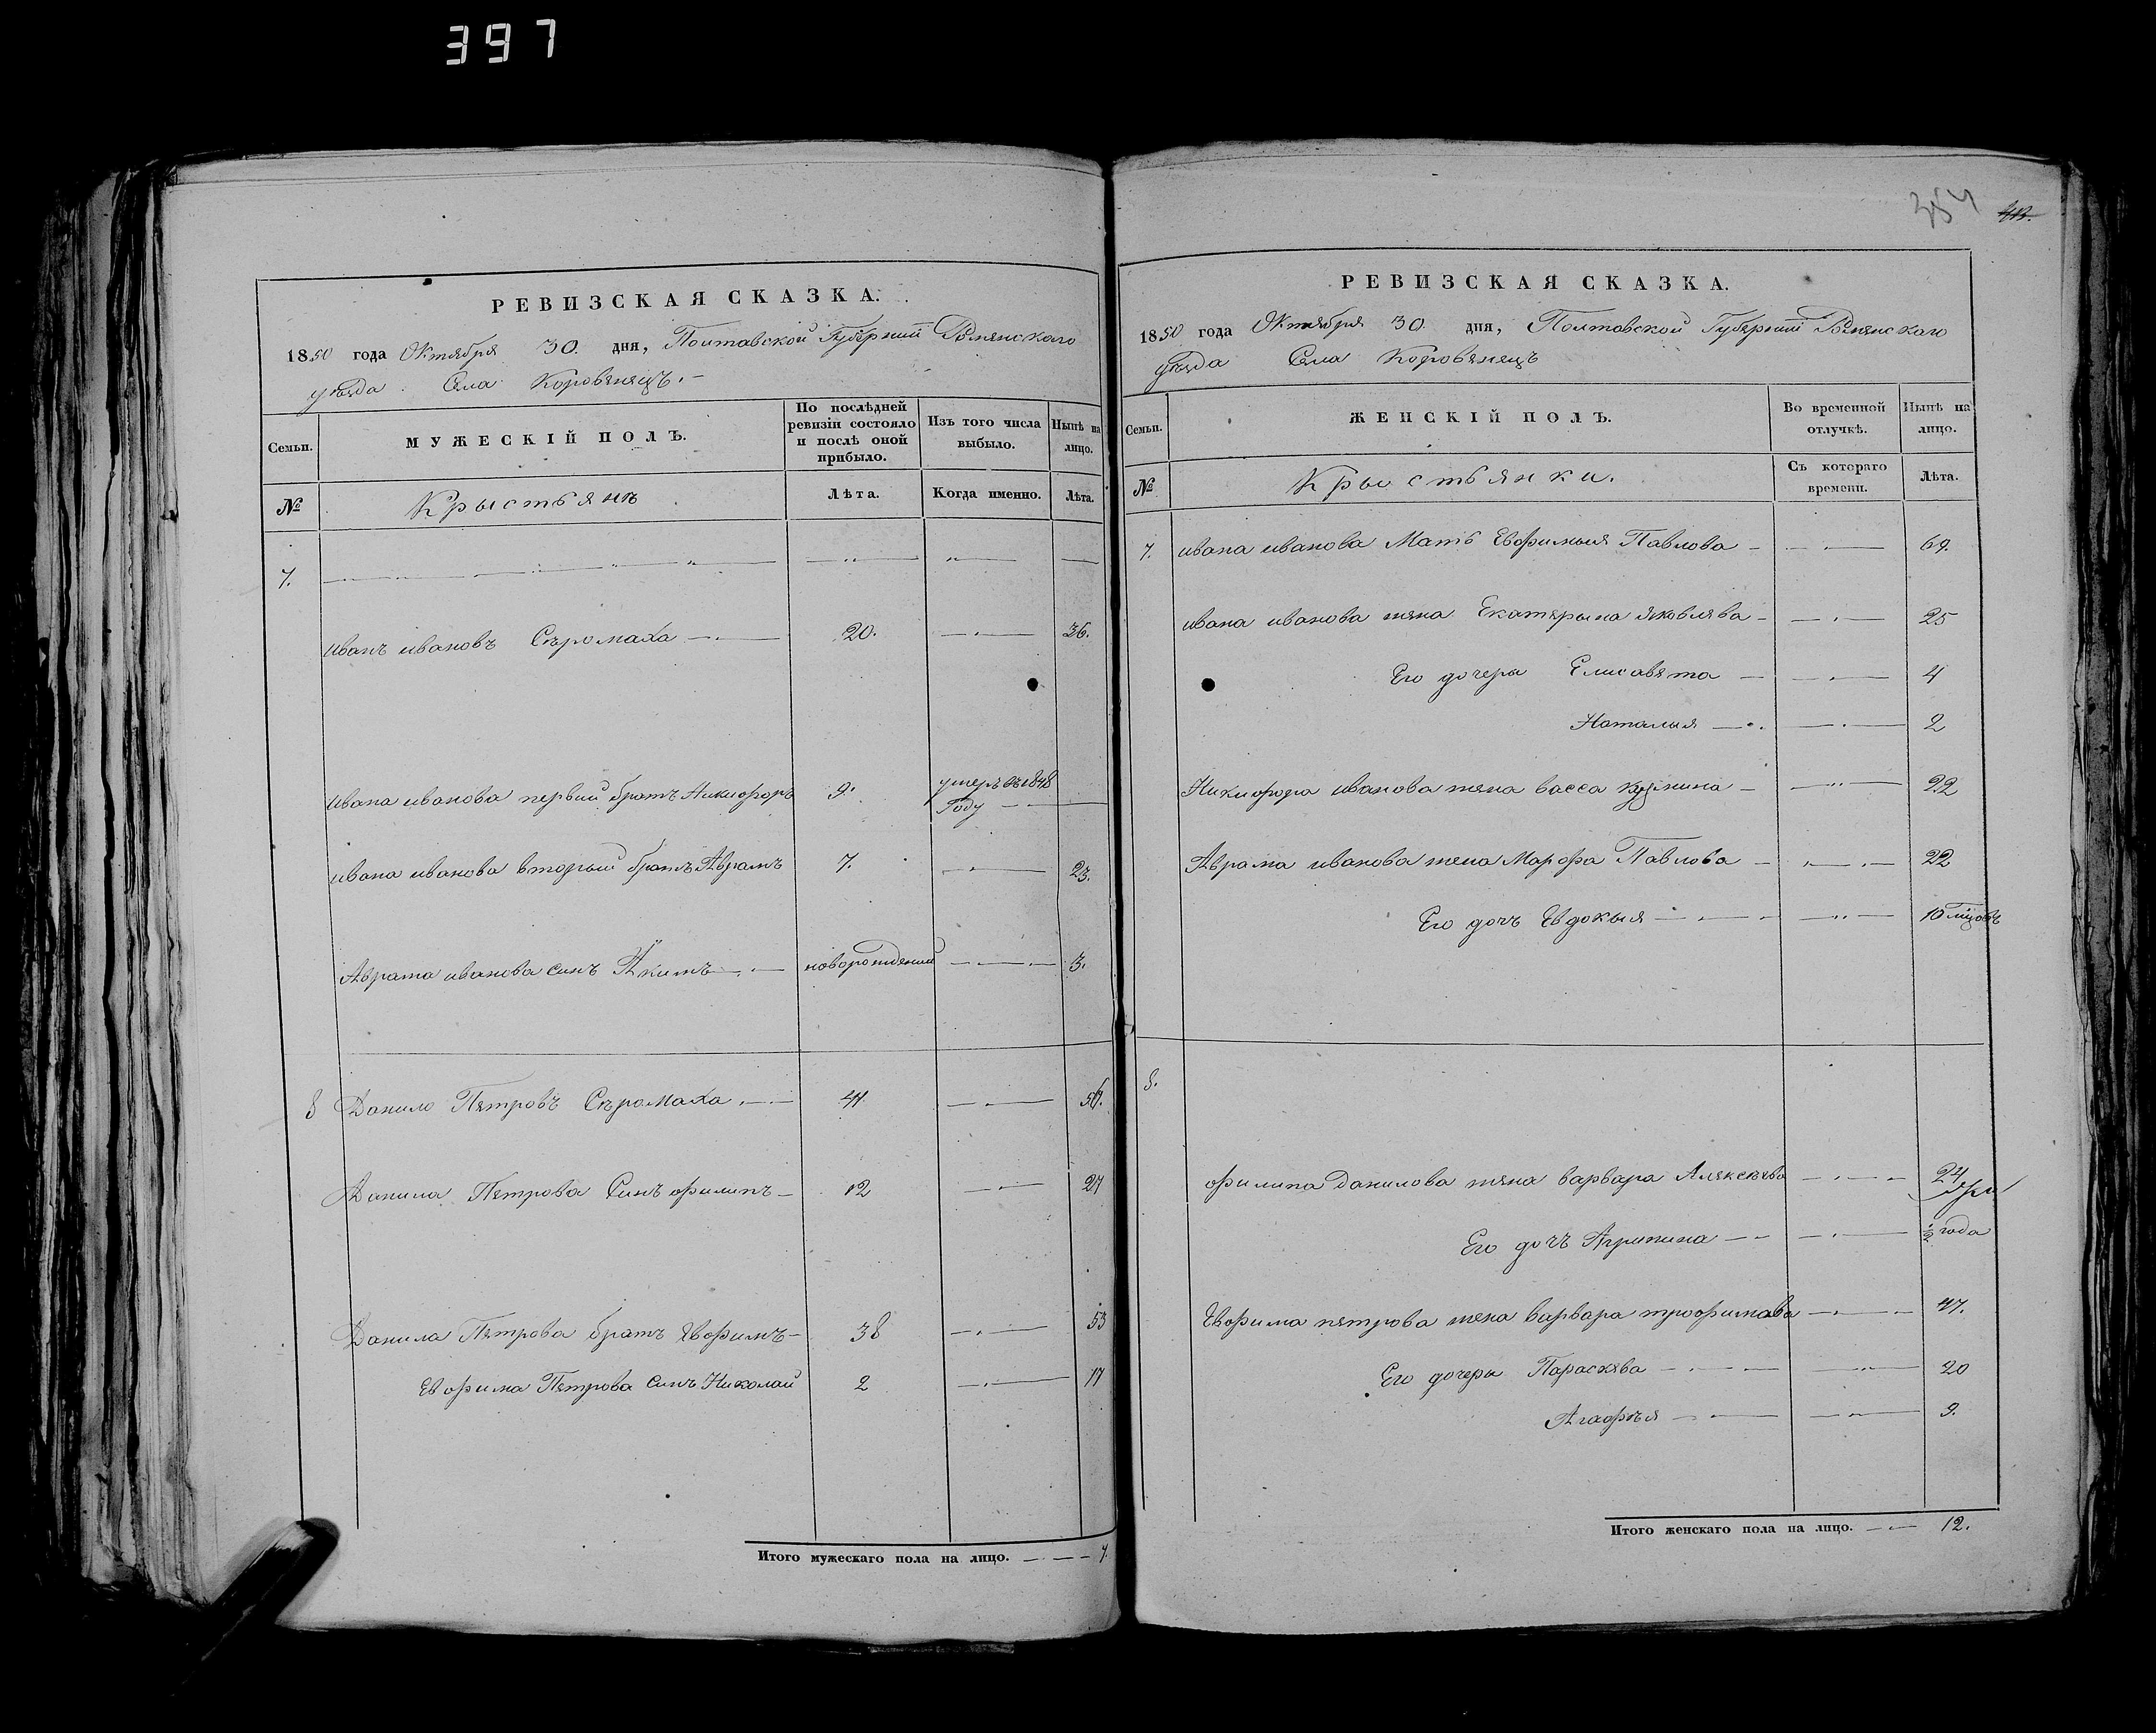 397
РЕВИЗСКАЯ СКАЗКА.
1850 года Октября 30. дня, Полтавской Губерніи Роменскаго
уезда Села Коровенецъ.
Семьи.
МУЖЕСКІЙ ПОЛЪ.
По послѣдней ревизіи состояло и послѣ оной прибыло.
Изъ того числа выбыло.
Нынѣ на лицо.
№
Крыстьянъ
Лѣта.
Когда именно.
Лѣта.
7.
Иванъ ивановъ Сѣромаха 20. 36.
Ивана иванова первий братъ Никифоръ 9. умеръ въ 1848 Году
ивана иванова вторый братъ Аврамъ 7. 23.
Аврама иванова синъ Якимъ новорожденый 3.
8 Данило Петровъ Сѣромаха 41 56.
Данила Петрова Синъ филипъ 12 27
Данила Петрова братъ Евфимъ 38 53
Евфима Петрова синъ Николай 2 17
Итого мужескаго пола на лицо. 7.
384
РЕВИЗСКАЯ СКАЗКА.
1850 года Октября 30. дня, Полтавской Губерніи Роменскаго
уезда Села Коровенецъ
Семьи.
ЖЕНСКІЙ ПОЛЪ.
Во временной отлучкѣ.
Нынѣ на лицо.
№
Крыстьянки.
Съ котораго времени.
Лѣта.
7. ивана иванова Мать Евфимыя Павлова 69.
ивана иванова жена Екатерына яковлева 25
Его дочеры Елисавета 4
Наталыя 2
Никифора иванова жена васса кузмина 22
Аврама иванова жена Марфа Павлова 22
Его дочъ Евдокыя 10 мцовъ
8.
филипа данилова жена варвара Алексѣева 24
Его дочъ Агрипина ½ года
Евфима петрова жена варвара трофимова 47.
Его дочеры Параскева 20
Агафѣя 9.
Итого женскаго пола на лицо. 12.